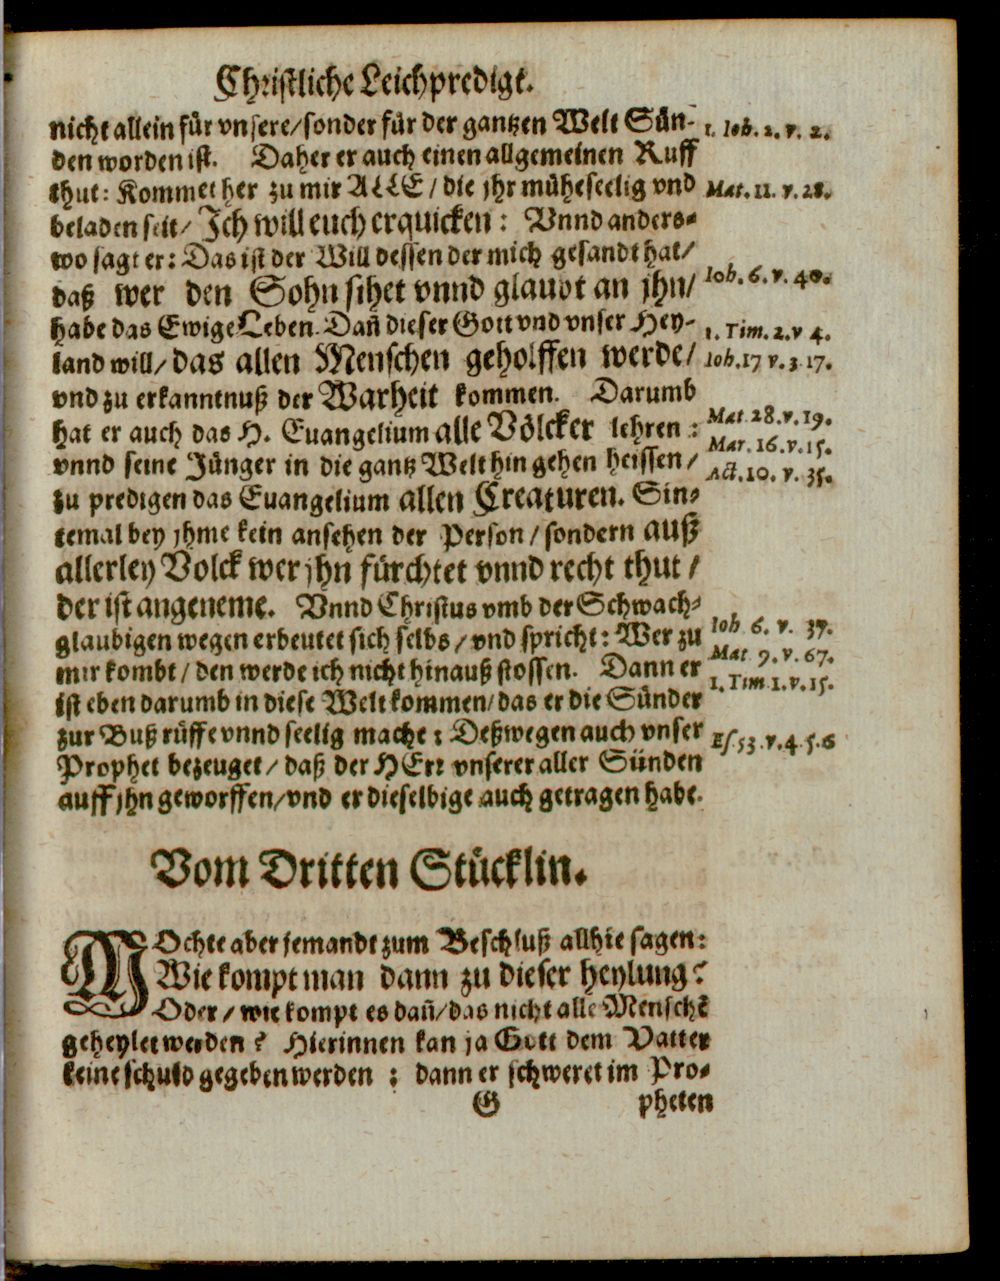 Christliche Leichpredigt.
nicht allein für vnsere/sonder für der gantzen Welt Sün- 1. Ioh. 2. v. 2.
den worden ist. Daher er auch einen allgemeinen Ruff
thut: Kommet her zu mir ALLE/die jhr müheseelig vnd Mat. 11. v. 28.
beladen seit/ Ich will euch erquicken: Vnnd anders-
wo sagt er: Das ist der Will dessen der mich gesandt hat/
daß wer den Sohn sihet vnnd glaubt an jhn/ Ioh. 6. v. 40.
habe das Ewige Leben. Dañ dieser Gott vnd vnser Hey- 1. Tim. 2. v 4.
land will/das allen Menschen geholffen werde/ Ioh. 17 v. 3 17.
vnd zu erkanntnuß der Warheit kommen. Darumb
hat er auch das H. Euangelium alle Völcker lehren: Mat 28. v. 19.
vnnd seine Jünger in die gantz Welt hin gehen heissen/ Mar. 16. v. 15.
zu predigen das Euangelium allen Creaturen. Sin- Act. 10. v. 35.
temal bey jhme kein ansehen der Person/sondern auß
allerley Volck wer jhn fürchtet vnnd recht thut/
der ist angeneme. Vnnd Christus vmb der Schwach-
glaubigen wegen erbeutet sich selbs/vnd spricht: Wer zu Ioh 6. v. 37.
mir kombt/den werde ich nicht hinauß stossen. Dann er Mat 9. v. 67.
ist eben darumb in diese Welt kommen/das er die Sünder 1. Tim 1. v. 15.
zur Buß rüffe vnnd seelig mache: Deßwegen auch vnser Es. 53. v. 4 5. 6
Prophet bezeuget/daß der HErr vnserer aller Sünden
auff jhn geworffen/vnd er dieselbige auch getragen habe.
Vom Dritten Stücklin.
MOchte aber jemandt zum Beschluß allhie sagen:
Wie kompt man dann zu dieser heylung?
Oder/wie kompt es dañ/das nicht alle Menschẽ
geheylet werden? Hierinnen kan ja Gott dem Vatter
keine schuld gegeben werden: dann er schweret im Pro-
G pheten